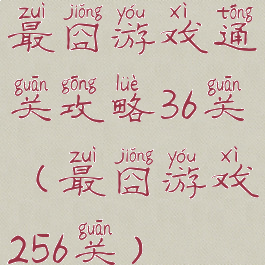 zuì jiǒng yóu xì tōng
最囧游戏通
guān gōng lüè guān
关攻略36关
zuì jiǒng yóu xì
（最囧游戏
guān
256关）